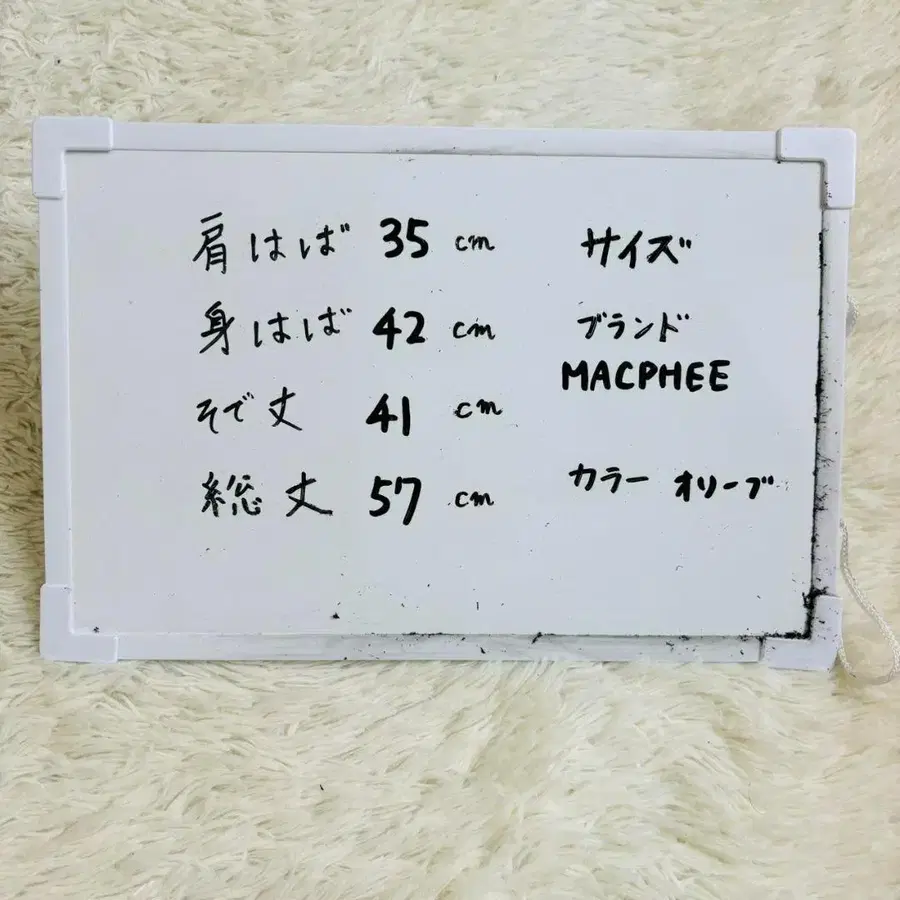 肩はば 35 cm
身はば 42 cm
そで丈 41 cm
総丈 57 cm
サイズ
ブランド
MACPHEE
カラー オリーブ